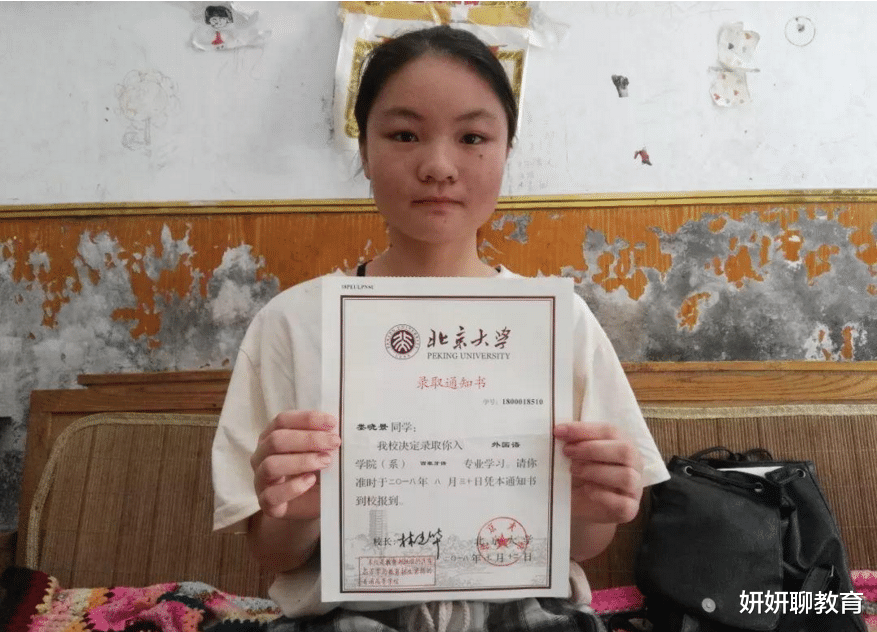 北京大学
PEKING UNIVERSITY
录取通知书
学号：1800018510
同学：
我校决定录取你入 外国语
学院（系） 西班牙语 专业学习。请你
准时于二〇一八年 八 月三十日凭本通知书
到校报到。
校长：林建华 北京大学
二〇一八年七月十二日
妍妍聊教育